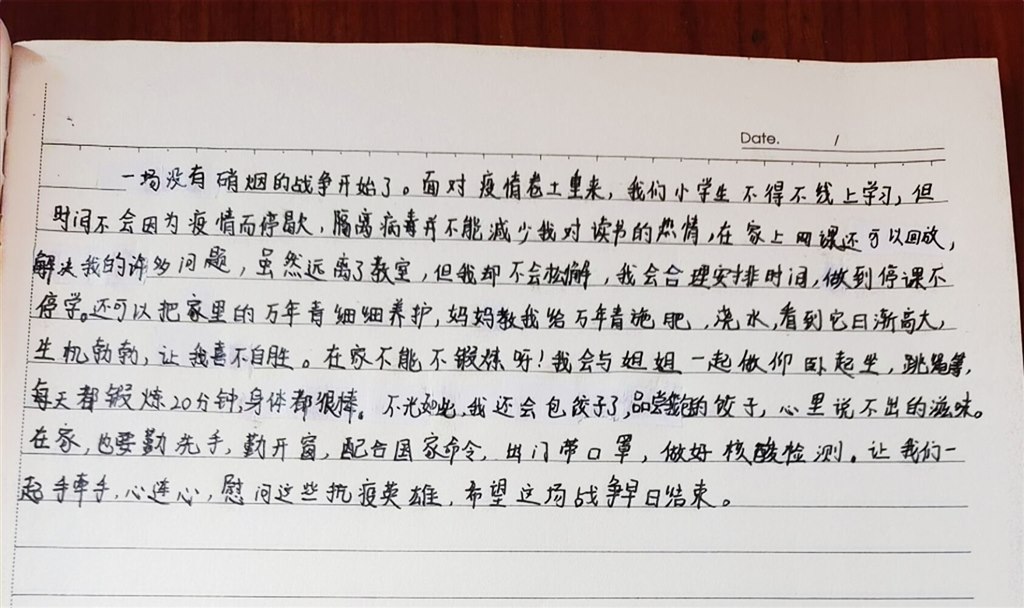 Date. /
一场没有硝烟的战争开始了。面对疫情卷土重来，我们小学生不得不线上学习，但
时间不会因为疫情而停歇，隔离病毒并不能减少我对读书的热情，在家上网课还可以回放，
解决我的许多问题，虽然远离了教室，但我却不会松懈，我会合理安排时间，做到停课不
停学。还可以把家里的万年青细细养护，妈妈教我给万年青施肥，浇水，看到它日渐高大，
生机勃勃，让我喜不自胜。在家不能不锻炼呀！我会与姐姐一起做仰卧起坐，跳绳等，
每天都锻炼20分钟，身体都很棒。不光如此，我还会包饺子了，品尝我包的饺子，心里说不出的滋味。
在家，也要勤洗手，勤开窗，配合国家命令，出门带口罩，做好核酸检测。让我们一
起手牵手，心连心，慰问这些抗疫英雄，希望这场战争早日结束。